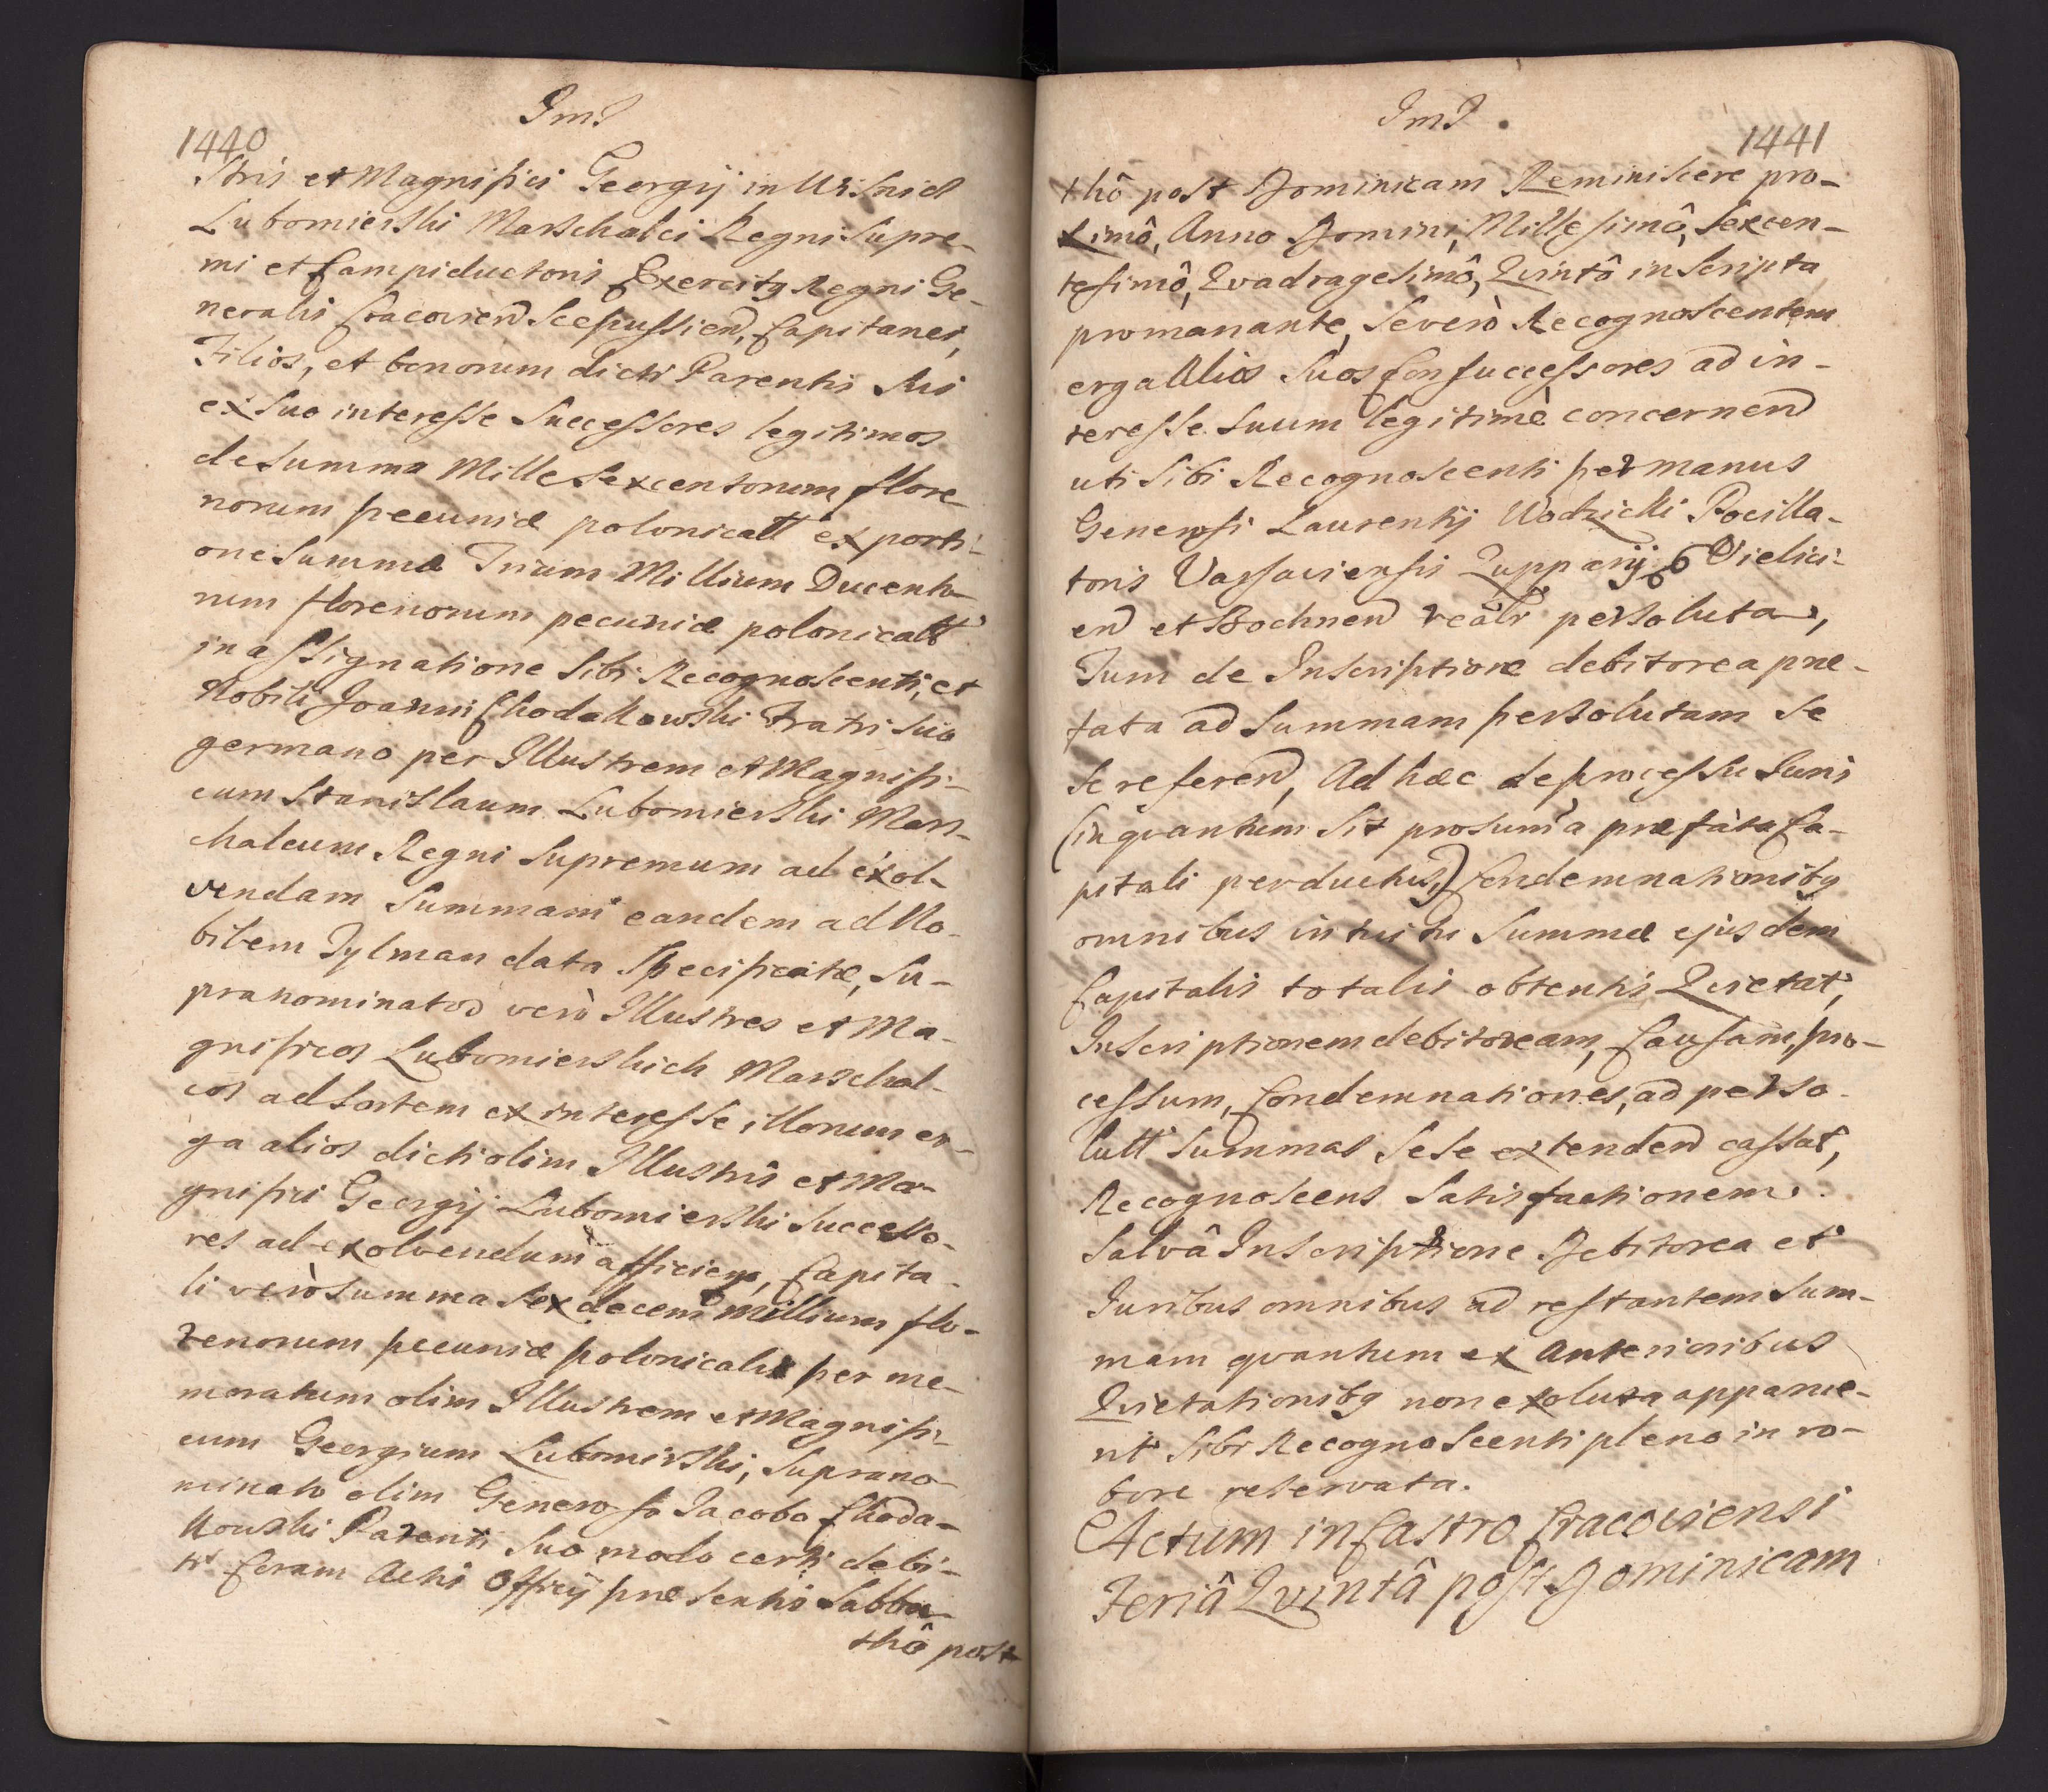 1440
JmJ
stris et Magnifici Georgij in Wisnicz
Lubomierski Marschalci Regni Supre-
mi et Campiductoris Exercitq Regni Ge-
neralis Cracovien Scepussien, Capitanei,
Filios, et bonorum dicti Parentis sui
ex suo interesse Successores legitimos
de Summa Mille Sexcentorum flore
norum pecuniæ polonicall ex porti-
one Summæ Trium Millium Ducento
rum florenorum pecuniæ polonicall
in assignatione sibi Recognoscenti, et
Nobili Joanni Chodakowski Fratri suo
germano per Illustrem et Magnifi-
cum Stanislaum Lubomierski Mars-
chalcum Regni Supremum ad exol-
vendam Summam eandem ad No-
bilem Tylman data specificatæ, Su-
pranominatos verò Illustres et Ma-
gnificos Lubomierskich Marschal-
cos ad Sortem ex interesse illorum er-
ga alios dicti olim Illustris et Ma-
gnifici Georgij Lubomierski Successo-
res ad exolvendum afficien, Capita-
li verò Summa Sexdecem Millium flo-
renorum pecuniæ polonicalis per me-
moratum olim Illustrem et Magnifi-
cum Georgium Lubomirski, Suprano-
minato olim Generoso Jacobo Choda-
kowski Parenti suo modo certi debi-
ti Coram Actis Officij præsentis Sabba-
thô post
JmJ.
1441
thô post Dominicam Reminiscere pro-
ximô, Anno Domini, Millesimô, Sexcen-
tesimô, Qvadragesimô, Qvintô inscripta
promanante, Se verò Recognoscentem
erga Alios Suos Consuccessores ad in-
teresse Suum legitimè concernen
uti Sibi Recognoscenti per manus
Generosi Laurentij Wodzicki Pocilla-
toris Varsaviensis Zupparij Vielici-
en et Bochnen realr persoluta,
Tum de Inscriptione debitorea præ-
fata ad Summam persolutam Se
Se referen, Ad hæc de processu Juris
(in qvantum Sit pro suma præfata Ca-
pitali perductus,) Condemnationibq
omnibus intuitu Summæ ejusdem
Capitalis totalis obtentis Qvietat,
Inscriptionem debitoream, Causam, pro-
cessum, Condemnationes, ad perso-
lutt Summas Sese extenden cassat,
Recognoscens Satisfactionem.
Salvâ Inscriptione Debitorea et
Juribus omnibus ad restantem Sum-
mam qvantum ex Anterioribus
Qvietationibq non exoluta apparue-
rit Sibi Recognoscenti pleno in ro-
bore reservata.
Actum in Castro Cracoviensi
Feriâ Qvintâ post Dominicam